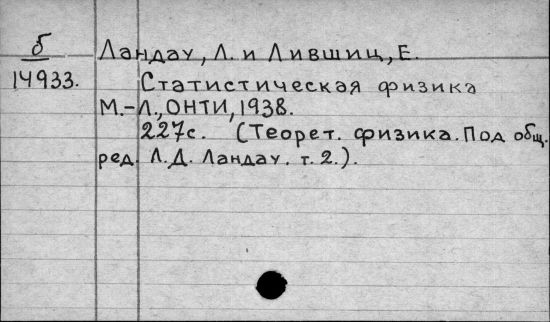 б Ландау, Л. и Лившиц, Е.
14933. Статистическая физика
М.-Л., ОНТИ, 1938.
227с. (Теорет. физика. Под общ.
ред. Л.Д. Ландау. т. 2.).